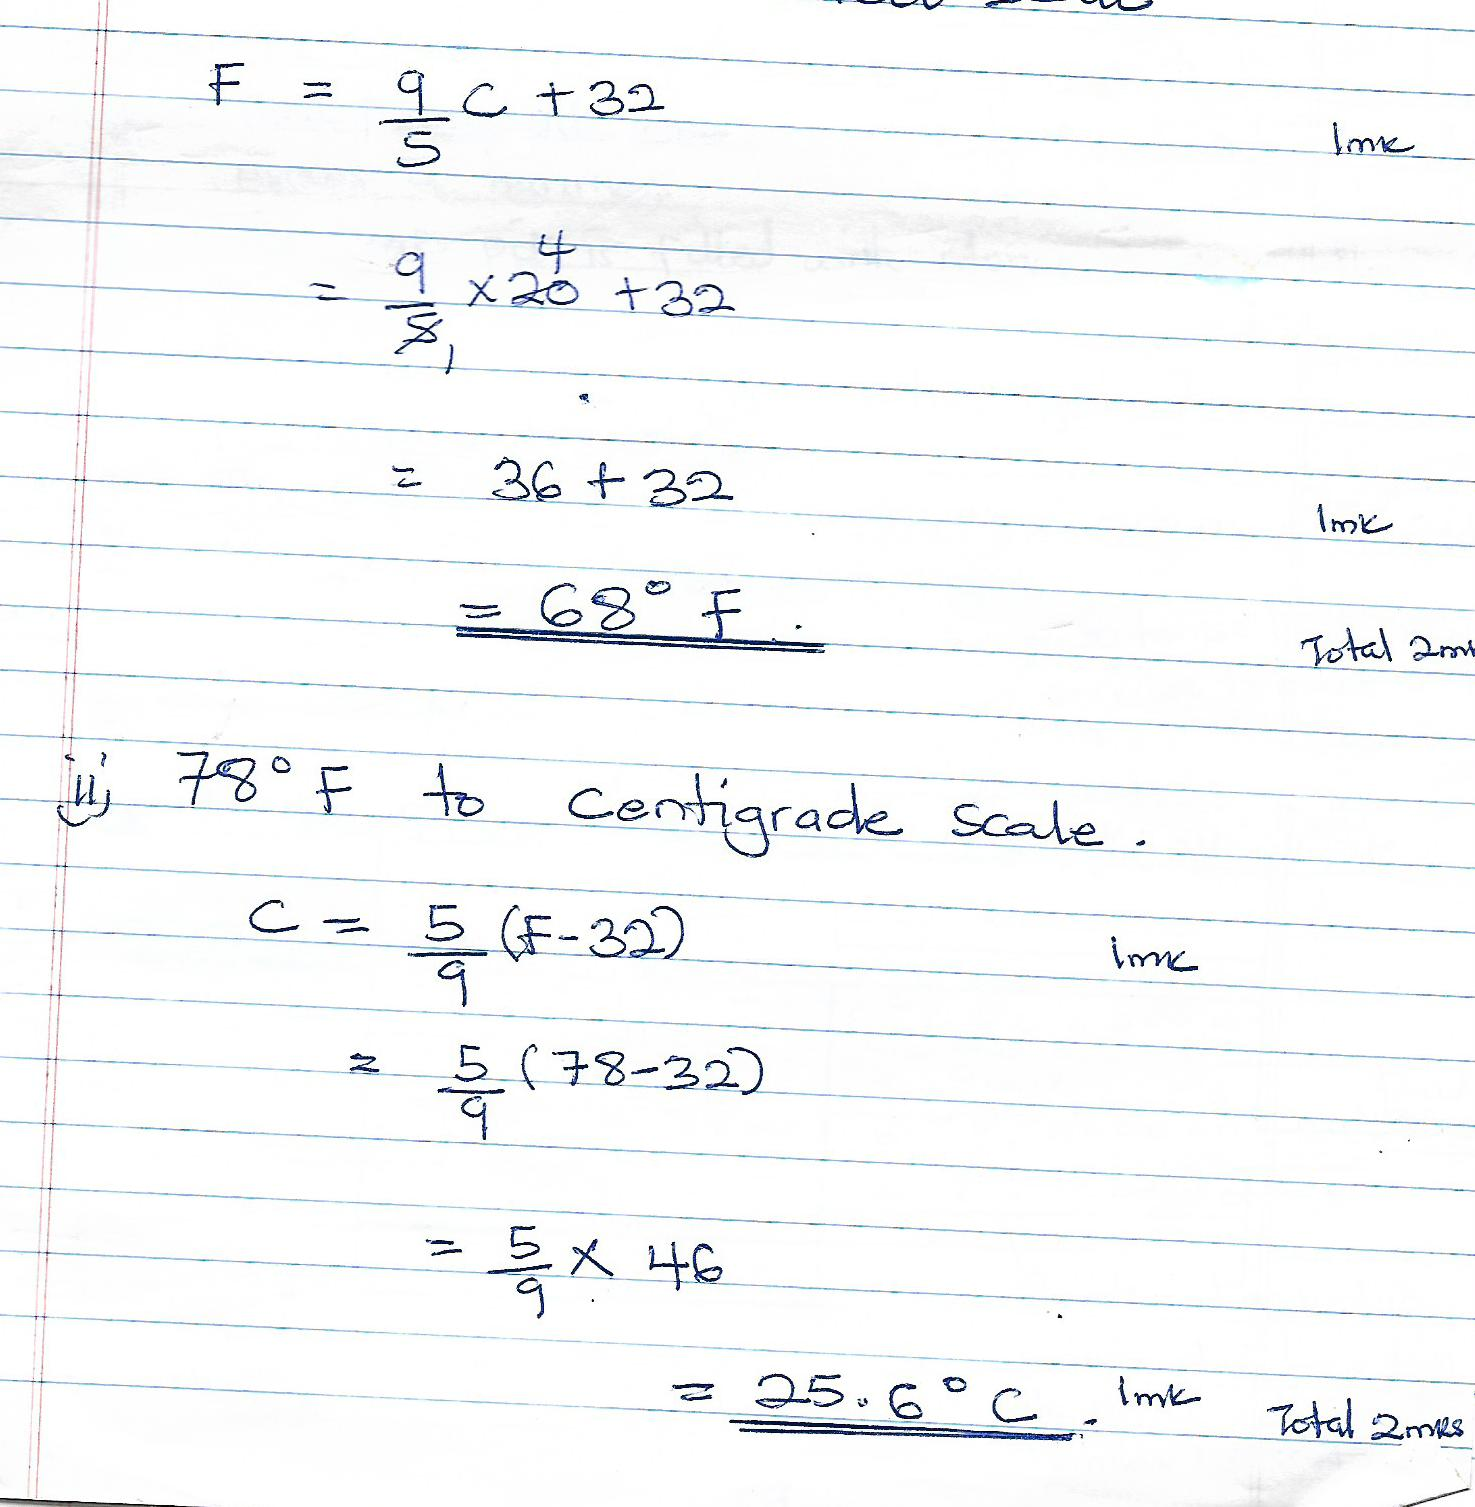 F = 9/5 C + 32 1mk
= 9/5 1 × 20 4 + 32
= 36 + 32 1mk
= 68° F. Total 2m
ii) 78° F to Centigrade Scale.
C = 5/9 (F-32) 1mk
= 5/9 (78-32)
= 5/9 × 46
= 25.6° C. 1mk Total 2mks